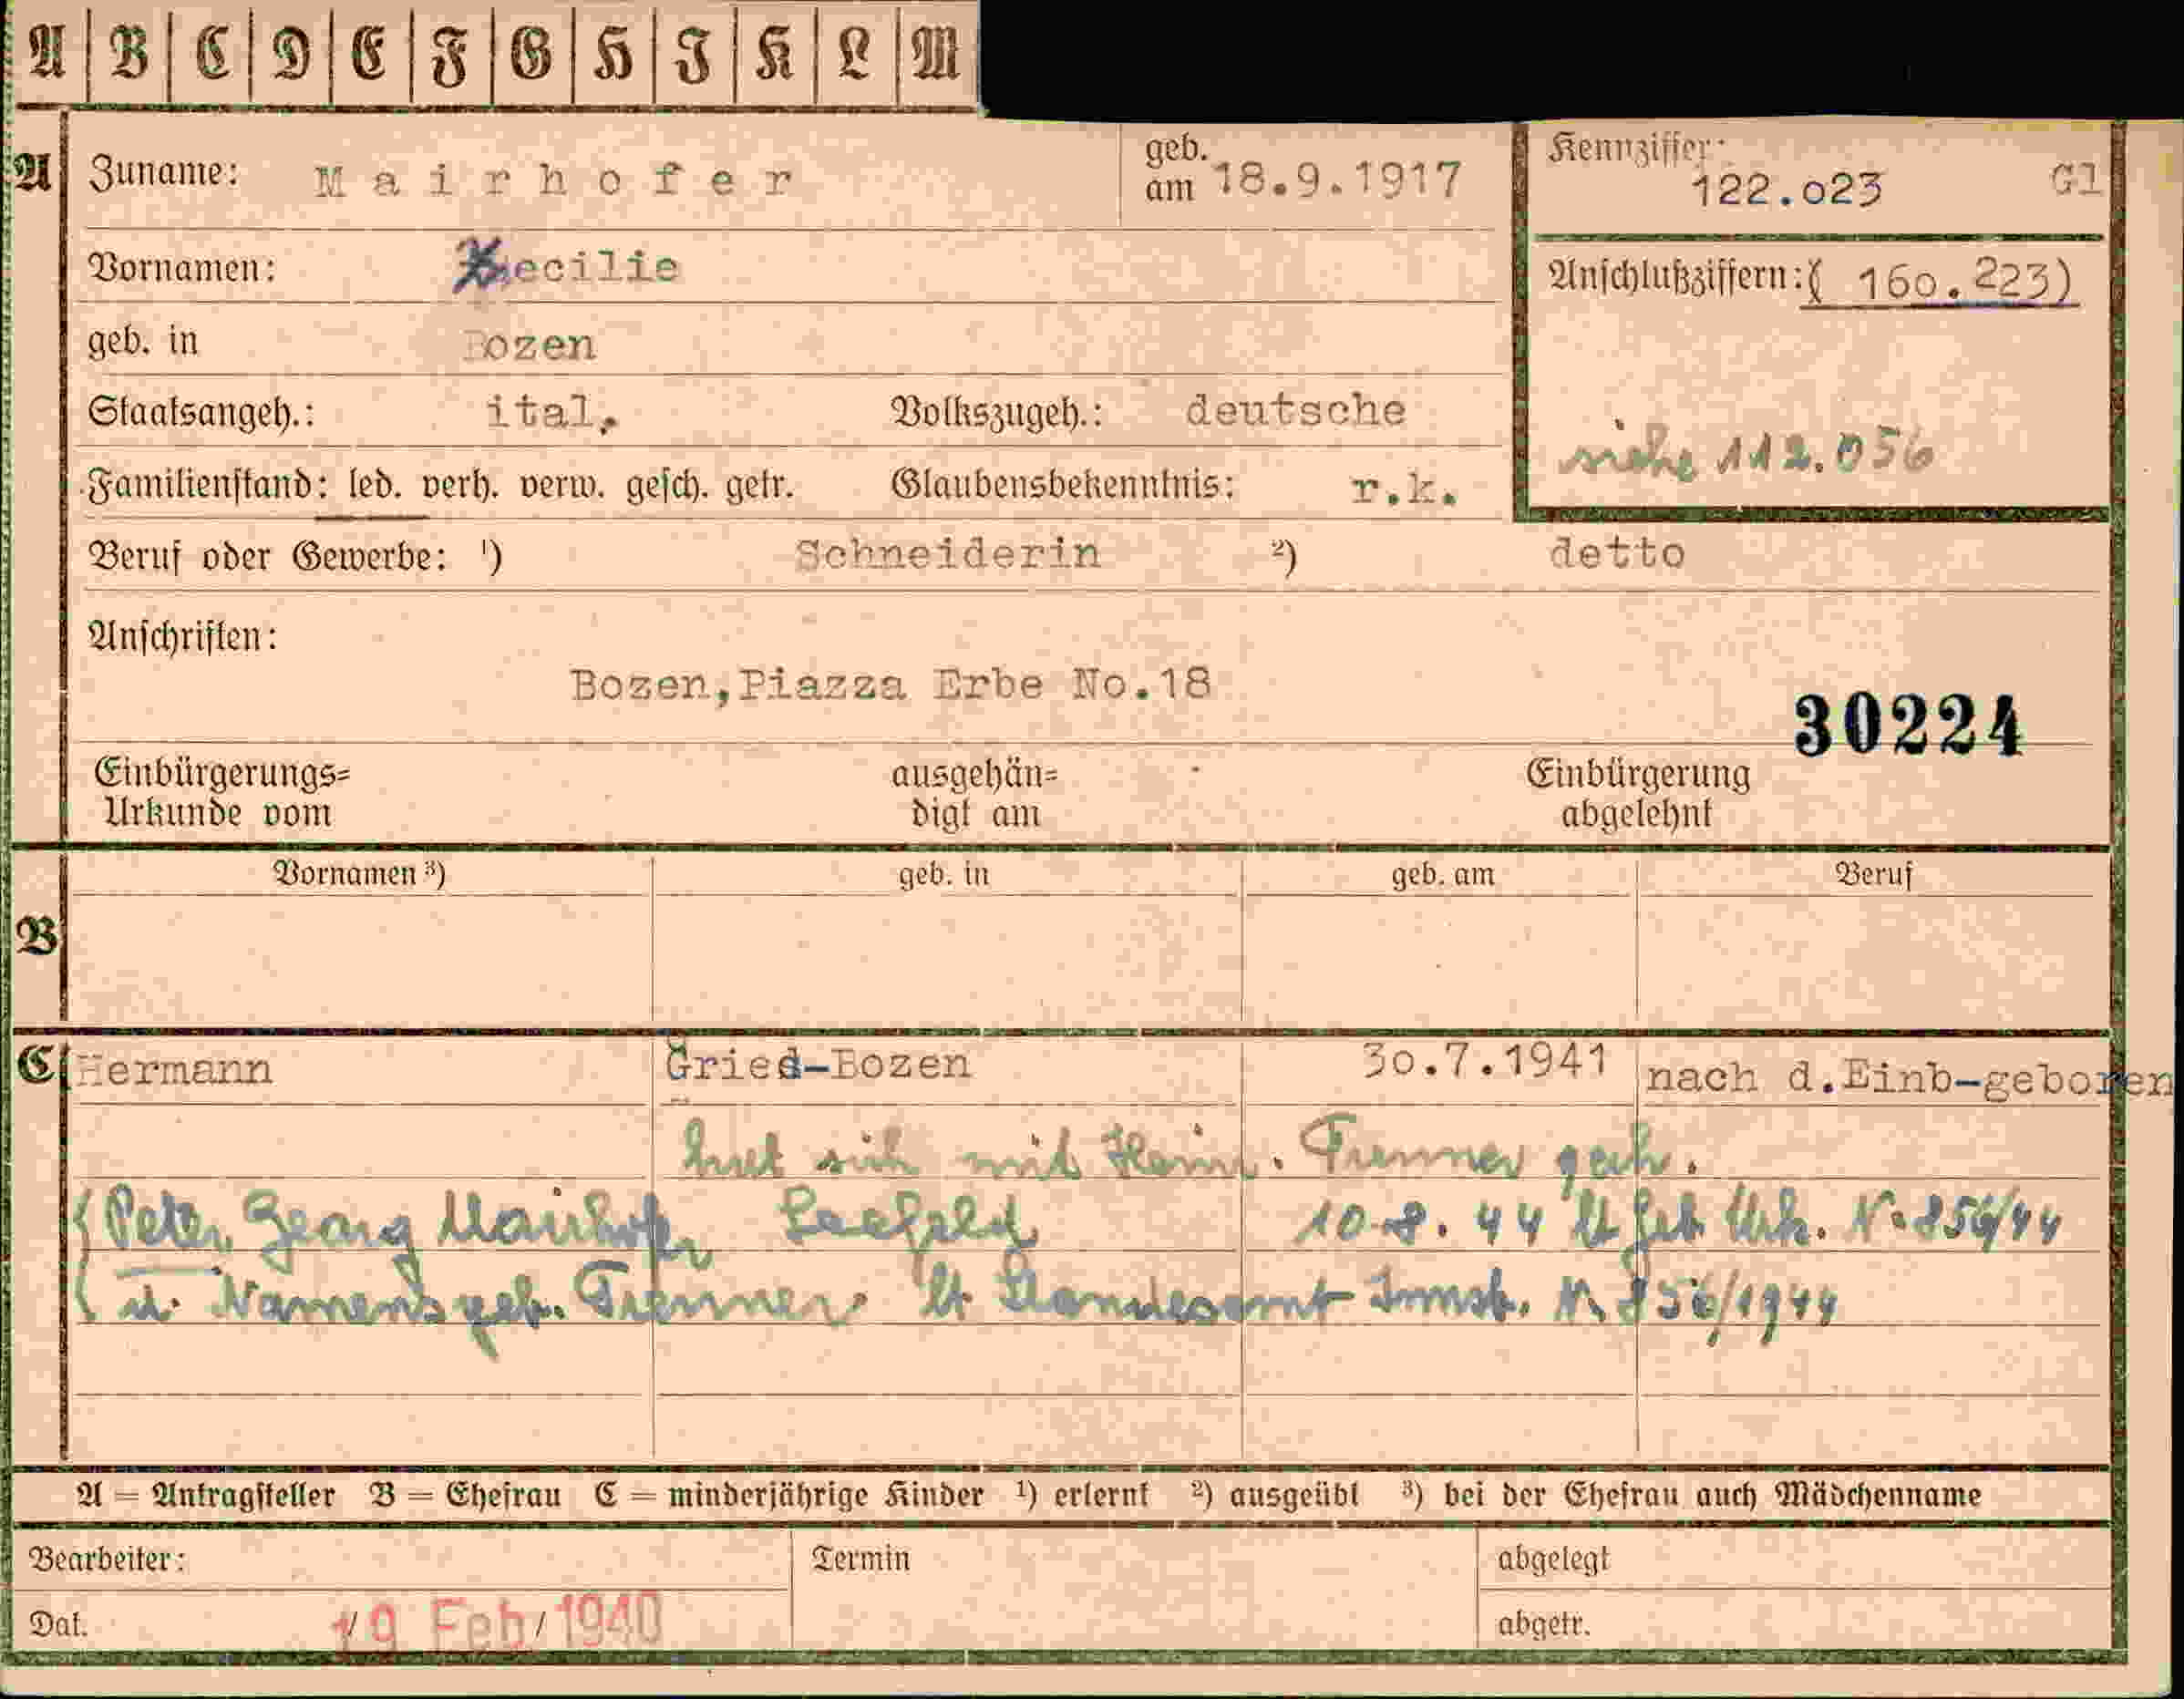 A B C D E F G H I K L M
A Zuname: Mairhofer geb. am 18.9.1917 Kennziffer: 122.o23 Gl
Vornamen: ecilie Anschlußziffern: ( 16o.223)
geb. in Bozen
Staatsangeh.: ital. Volkszugeh.: deutsche
siehe 112.056
Familienstand: led. verh. verw. gesch. getr. Glaubensbekenntnis: r.k.
Beruf oder Gewerbe: ¹) Schneiderin ²) detto
Anschriften:
Bozen,Piazza Erbe No.18
30224
Einbürgerungs= Urkunde vom ausgehän= digt am Einbürgerung abgelehnt
Vornamen ³) geb. in geb. am Beruf
B
C Hermann Gries-Bozen 3o.7.1941 nach d.Einb-geboren
hat sich mit Heinr. Trenner
Peter Georg Mairhofer Seefeld 10.8.44 lt Geb. Urk. N. 856/44
u. Namensgeb. Trenner lt Standesamt Innsb. N. 856/1944
A = Antragsteller B = Ehefrau C = minderjährige Kinder ¹) erlernt ²) ausgeübt ³) bei der Ehefrau auch Mädchenname
Bearbeiter: Termin abgelegt
Dat. 19 Feb 1940 abgetr.